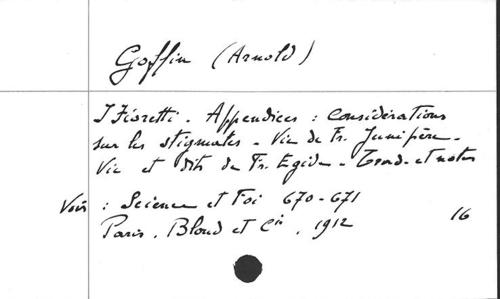 Goffin (Arnold)
I Fioretti. Appendices : Considérations
sur les stigmates - Vie de Fr. Junipère -
Vie et dits de Fr. Egide - Trad. et notes
Voir : Science et Foi 670-671
Paris. Bloud et Cie, 1912 16